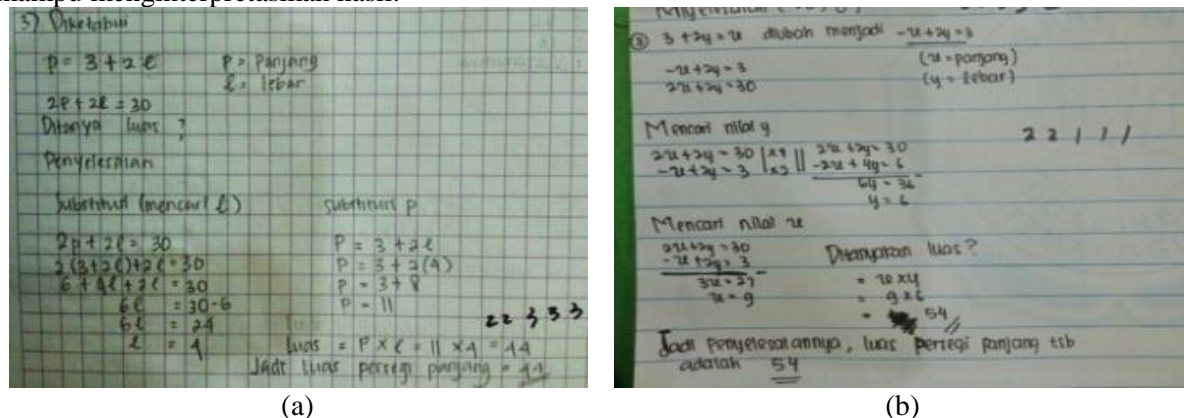 mampu menginterpretasikan hasil.
3) Diketahui
p = 3 + 2l p = Panjang
l = lebar
2p + 2l = 30
Ditanya luas ?
Penyelesaian
Substitusi (mencari l)
2p + 2l = 30
2(3+2l)+2l = 30
6 + 4l + 2l = 30
6l = 30-6
6l = 24
l = 4
substitusi p
P = 3 + 2l
P = 3 + 2(4)
P = 3 + 8
P = 11
2 2 3 3 3
luas = P x l = 11 x 4 = 44
Jadi luas persegi panjang = 44
(a)
③ 3 + 2y = x diubah menjadi -x + 2y = 3
(x = panjang)
(y = lebar)
-x + 2y = 3
2x + 2y = 30
Mencari nilai y
2x + 2y = 30 2x + 2y = 30
-x + 2y = 3 -2x + 4y = 6
6y = 36
y = 6
2 2 1 1 1
Mencari nilai x
2x + 2y = 30
-x + 2y = 3
3x = 27
x = 9
Ditanyakan luas?
= x x y
= 9 x 6
= 54
Jadi Penyelesaiannya, luas persegi panjang tsb
adalah 54
(b)